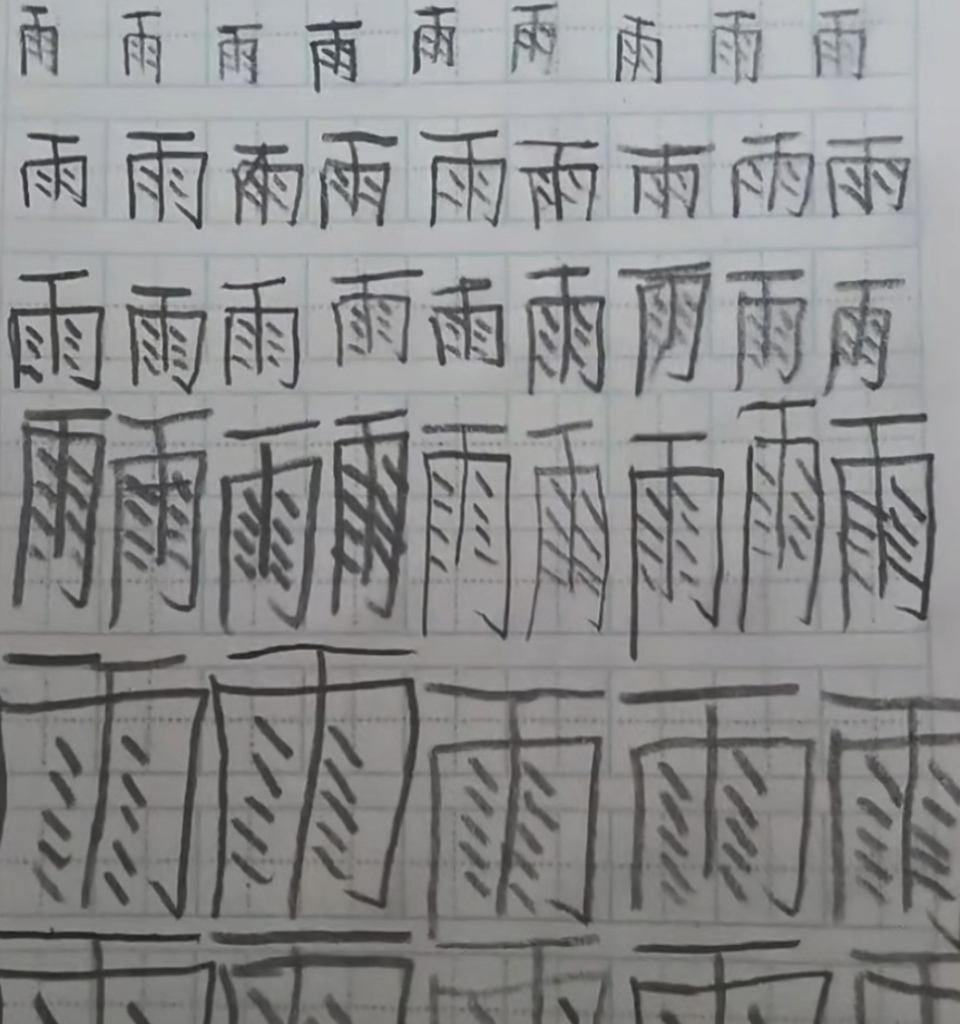 雨雨雨雨雨雨雨雨雨
雨雨雨雨雨雨雨雨雨
雨雨雨雨雨雨雨雨雨
雨雨雨雨雨雨雨雨雨
雨雨雨雨雨
雨雨雨雨雨